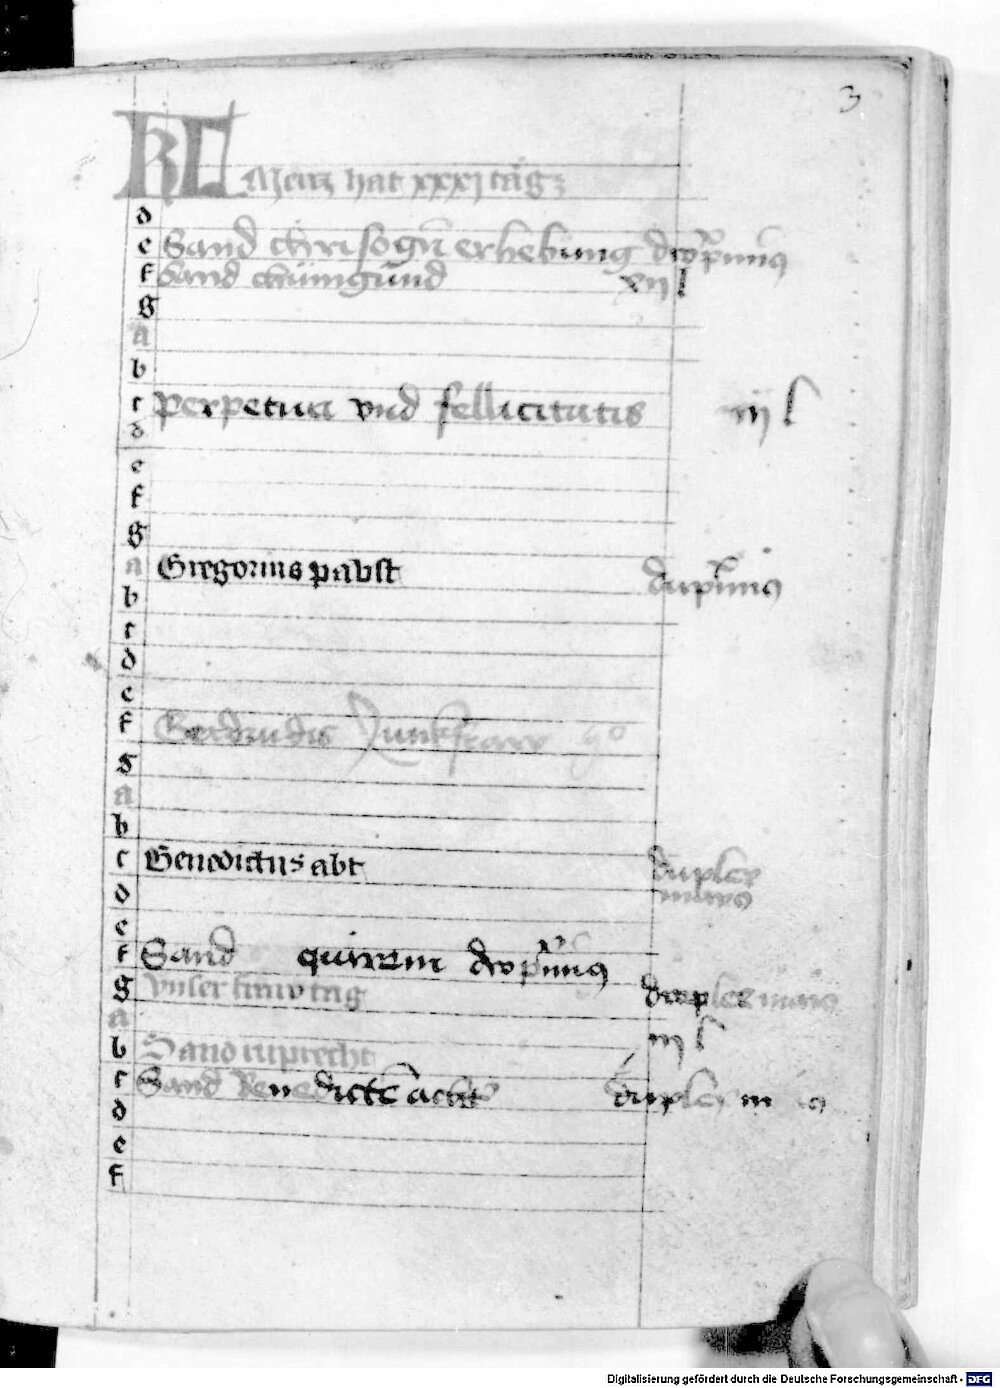 3
KL Mertz hat xxxj tag
d
e Sand chrisogñ erhebung dup̄ minꝰ
f Sand chunigund xij l
g
a
b
c Perpetua vnd fellicitatis iij l
d
e
f
g
a Gregorius pabst dup̄ minꝰ
b
c
d
e
f Gerdrudis Junkfraw
g
a
b
c Benedictus abt duplex
d maiꝰ
e
f Sand quirein dup̄ minꝰ
g vnser fraw tag duplex maiꝰ
a
b Sand ruprecht iij l
c Sand Benedictē acht duplex m
d
e
f
Digitalisierung gefördert durch die Deutsche Forschungsgemeinschaft - DFG